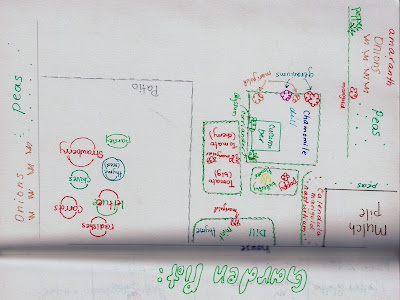 amaranth
Onions
peas
marigold
Peas
peas
mulch
pile
geraniums
marigold
Chamomile
dill
Alyssum
Tomato
(cherry)
Tomato
(big)
Calendula
marigold
nasturtium
marigold
Dill
Thyme
mint
house
Patio
Strawberry
Thyme
(seed)
Chives
lettuce
Carrots
radishes
Onions
peas
Plot: